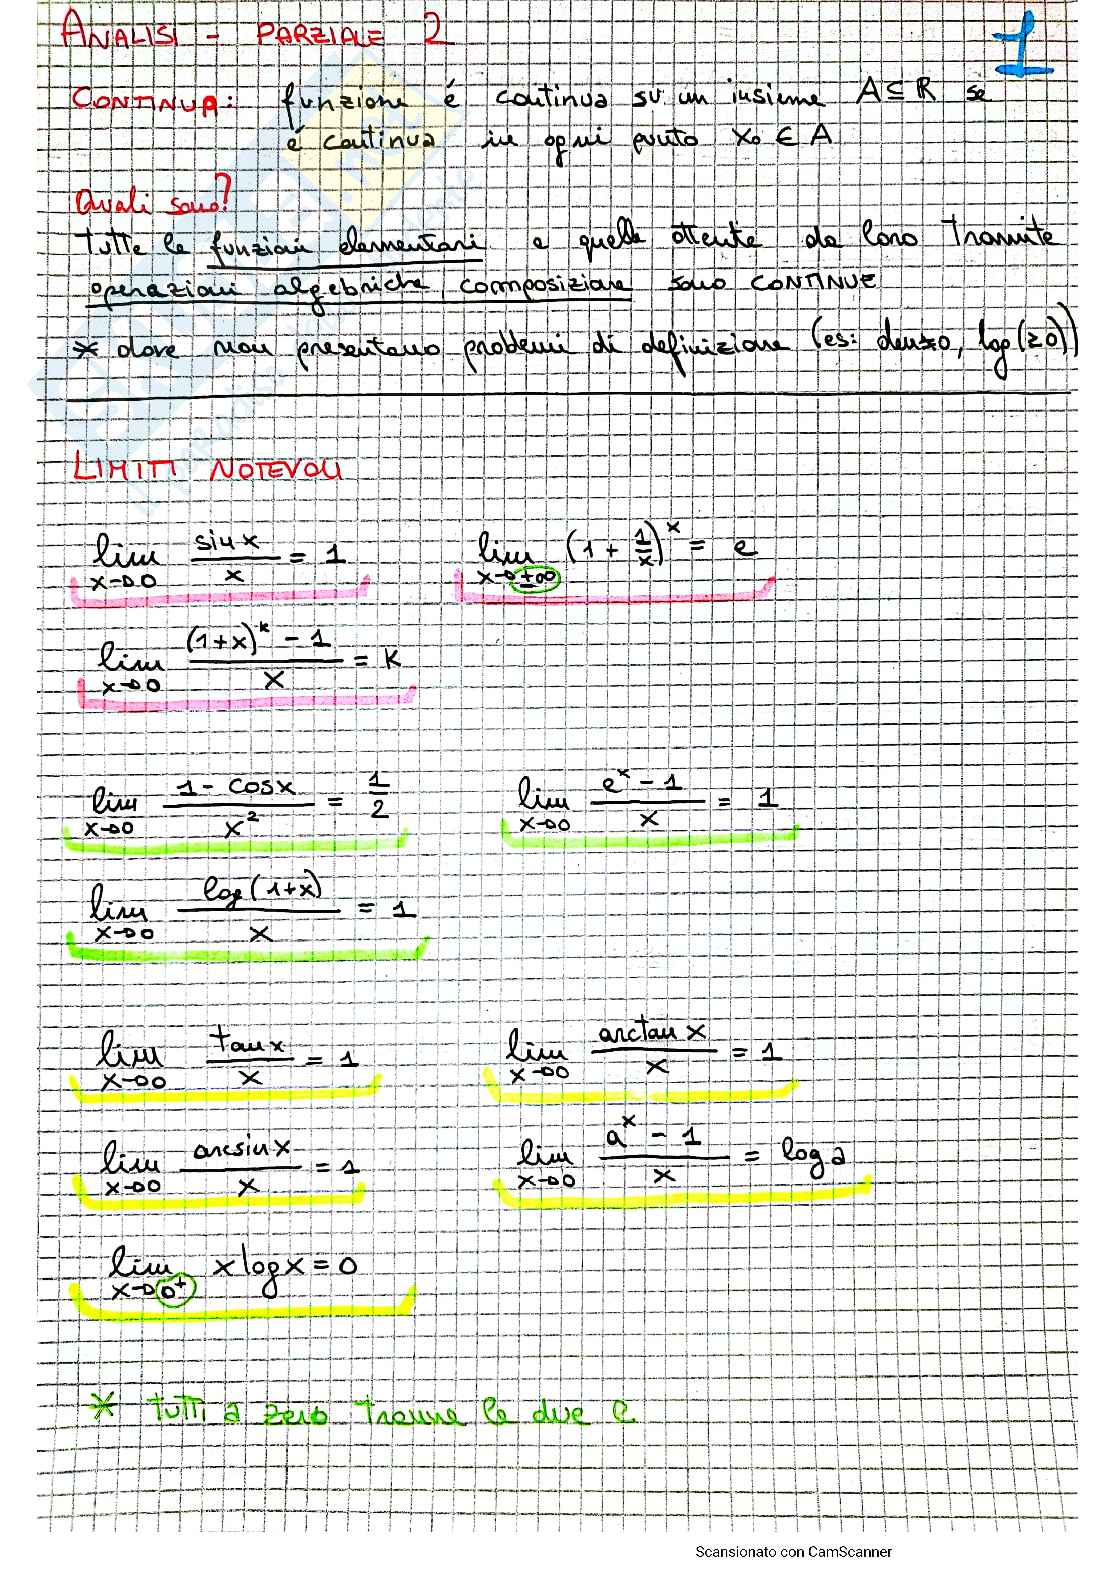 ANALISI - PARZIALE 2
1
CONTINUA: funzione é continua su un insieme A⊆R se
é continua in ogni punto x₀ ∈ A
Quali sono?
tutte le funzioni elementari e quelle ottenute da loro tramite
operazioni algebriche, composizione sono CONTINUE
* dove non presentano problemi di definizione (es: den≠0, log(≥0))
LIMITI NOTEVOLI
lim x→0 sin x / x = 1    lim x→±∞ (1 + 1/x)^x = e
lim x→0 ((1+x)^k - 1) / x = k
lim x→0 (1 - cosx) / x² = 1/2    lim x→0 (e^x - 1) / x = 1
lim x→0 log(1+x) / x = 1
lim x→0 tan x / x = 1    lim x→0 arctan x / x = 1
lim x→0 arcsin x / x = 1    lim x→0 (a^x - 1) / x = log a
lim x→0⁺ x log x = 0
* tutti a zero tranne le due e
Scansionato con CamScanner